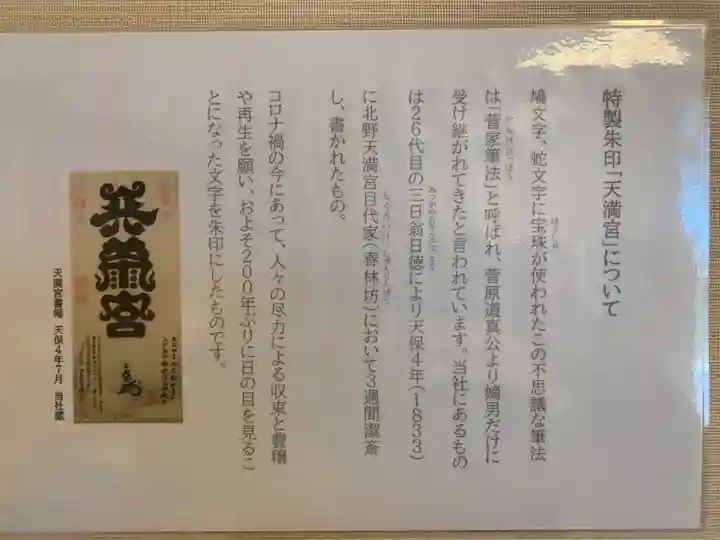 特製朱印「天満宮」について
鳩文字、蛇文字に宝珠が使われたこの不思議な筆法
は「菅家筆法」と呼ばれ、菅原道真公より嫡男だけに
受け継がれてきたと言われています。当社にあるもの
は26代目の三日翁日徳により天保4年(1833)
に北野天満宮目代家(春林坊)において3週間潔斎
し、書かれたもの。
コロナ禍の今にあって、人々の尽力による収束と豊穣
や再生を願い、およそ200年ぶりに日の目を見るこ
とになった文字を朱印にしたものです。
天満宮書幅 天保4年7月 当社蔵